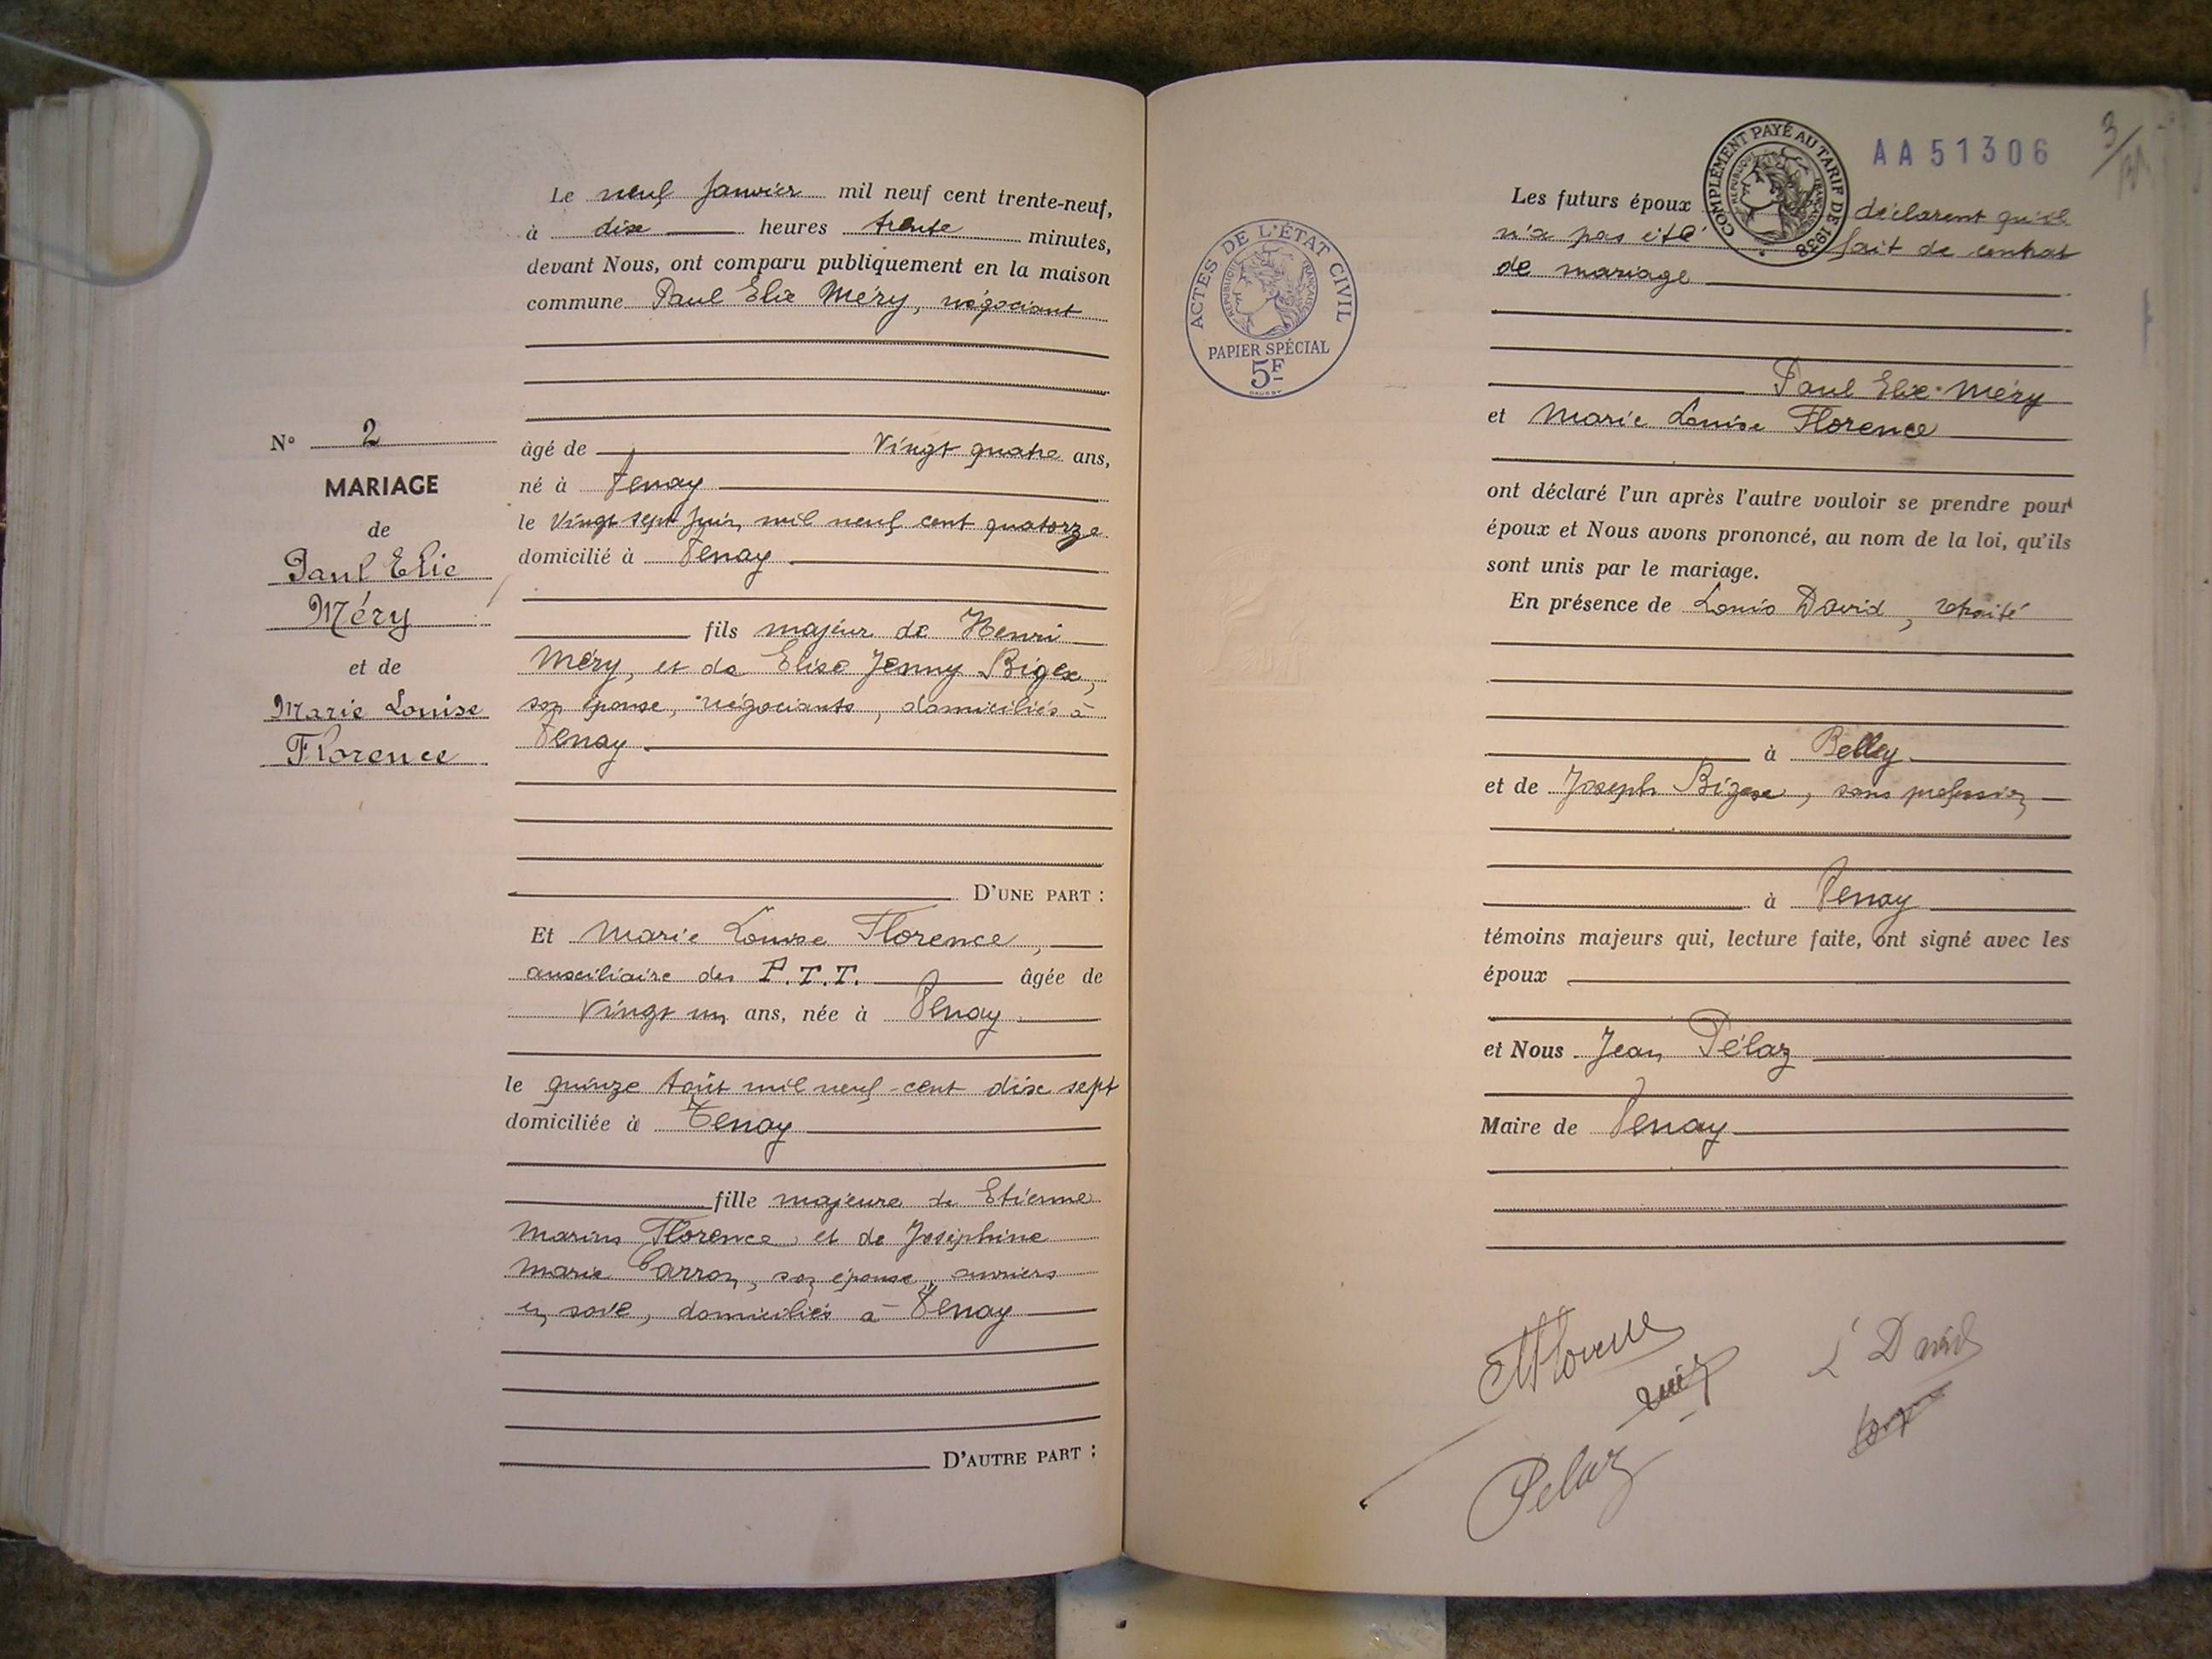 N° 2
MARIAGE
de
Paul Elie
Méry
et de
Marie Louise
Florence
Le neuf Janvier mil neuf cent trente-neuf,
à dix heures trente minutes,
devant Nous, ont comparu publiquement en la maison
commune Paul Elie Méry, négociant
âgé de Vingt quatre ans,
né à Tenay
le Vingt sept Juin mil neuf cent quatorze
domicilié à Tenay
fils majeur de Henri
Méry, et de Elise Jenny Bigex,
son épouse, négociants, domiciliés à
Tenay
D'UNE PART :
Et Marie Louise Florence,
auxiliaire des P.T.T. âgée de
Vingt un ans, née à Tenay
le quinze Août mil neuf cent dix sept
domiciliée à Tenay
fille majeure de Etienne
Marius Florence et de Joséphine
Marie Carron, son épouse, ouvriers
en soie, domiciliés à Tenay
D'AUTRE PART :
ACTES DE L'ÉTAT CIVIL
RÉPUBLIQUE FRANÇAISE
PAPIER SPÉCIAL
5F
COMPLÉMENT PAYÉ AU TARIF DE 1938
RÉPUBLIQUE FRANÇAISE
AA51306
3/
Les futurs époux déclarent qu'il
n'a pas été fait de contrat
de mariage
Paul Elie Méry
et Marie Louise Florence
ont déclaré l'un après l'autre vouloir se prendre pour
époux et Nous avons prononcé, au nom de la loi, qu'ils
sont unis par le mariage.
En présence de Louis David, retraité
à Belley
et de Joseph Bigex, sans profession
à Tenay
témoins majeurs qui, lecture faite, ont signé avec les
époux
et Nous Jean Pélaz
Maire de Tenay
Florence
L David
Pelaz